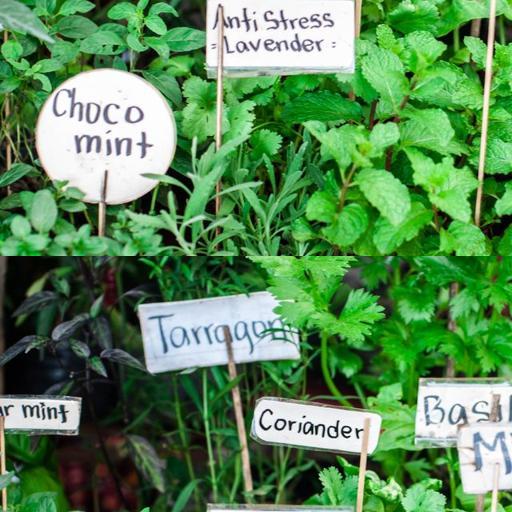 Anti Stress
- Lavender -
Choco
mint
Tarragon
mint
Coriander
Basil